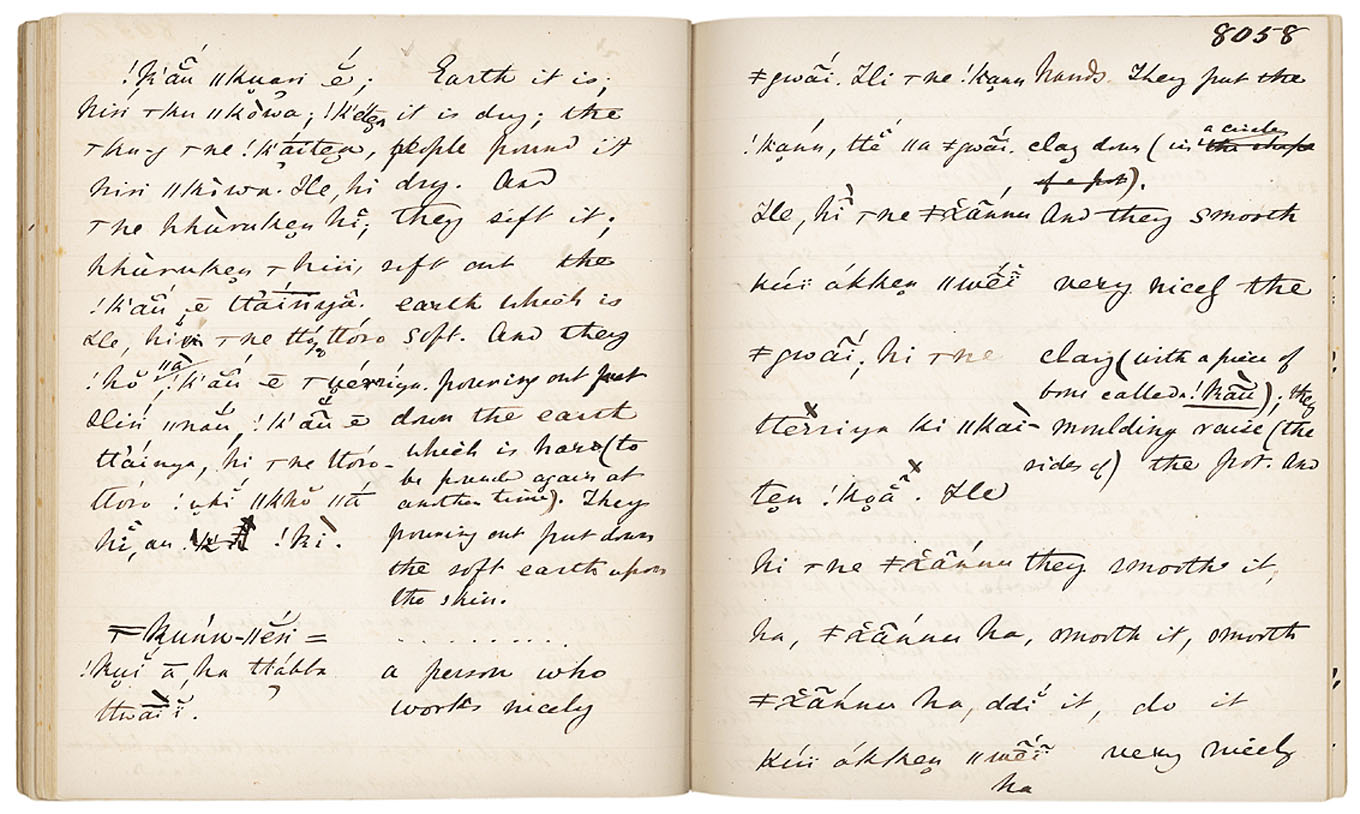 !k'ãũ ǁkuari ĕ́; Earth it is;
hiń ⊤ku ǁkŏwa; !k'étẹn it is dry; the
⊤ku-g ⊤ne !káitẹn, people pound it
hiń ǁkŏwa. Ĭle, hi dry. And
⊤ne khùrukẹn hĭ; they sift it;
khùrukẹn ⊤hiń, sift out the
!k'ãũ ē ttáinyã. earth which is
Ĭle, hiń ⊤ne ttóro soft. And they
!hŏ ǁà !k'ãũ ē ⊤uérriya. pouring out put
Hiń ǁnaŭ, !k'ãũ ē down the earth
ttáinya, hi ⊤ne ttóro- which is hard (to
be pound again at
ttóro !uhĭ ǁkhŏ ǁá another time). They
hĭ, au !kĭ. pouring out put down
the soft earth upon
the skin.
=kuńn-ǁĕńi= . . . . . . . . .
!kuĭ ā, ha ttábba a person who
ttwăĭĭ. works nicely
8058
ǂgwãí. Ĭli ⊤ne !kạnn hands. They put the
!kạnn, ttĕ́ ǁa ǂgwãí. clay down (in the shape a circle
of a pot).
Ĭle, hĭ ⊤ne ǂx̆ãńnu And they smooth
kúï ákkẹn ǁwĕ́ĭ very nicely the
ǂgwãí; hi ⊤ne clay (with a piece of
bone called !kãũ); they
ttérriya ki ǁkài- moulding raise (the
sides of) the pot. And
tẹn !kọ̃ã. Ĭle
hi ⊤ne ǂx̆ãńnu they smooth it,
ha, ǂx̆ãńnu ha, smooth it, smooth
ǂx̆ãńnu ha, ddĭ it, do it
kúï ákkẹn ǁwĕ́ĭ very nicely
ha